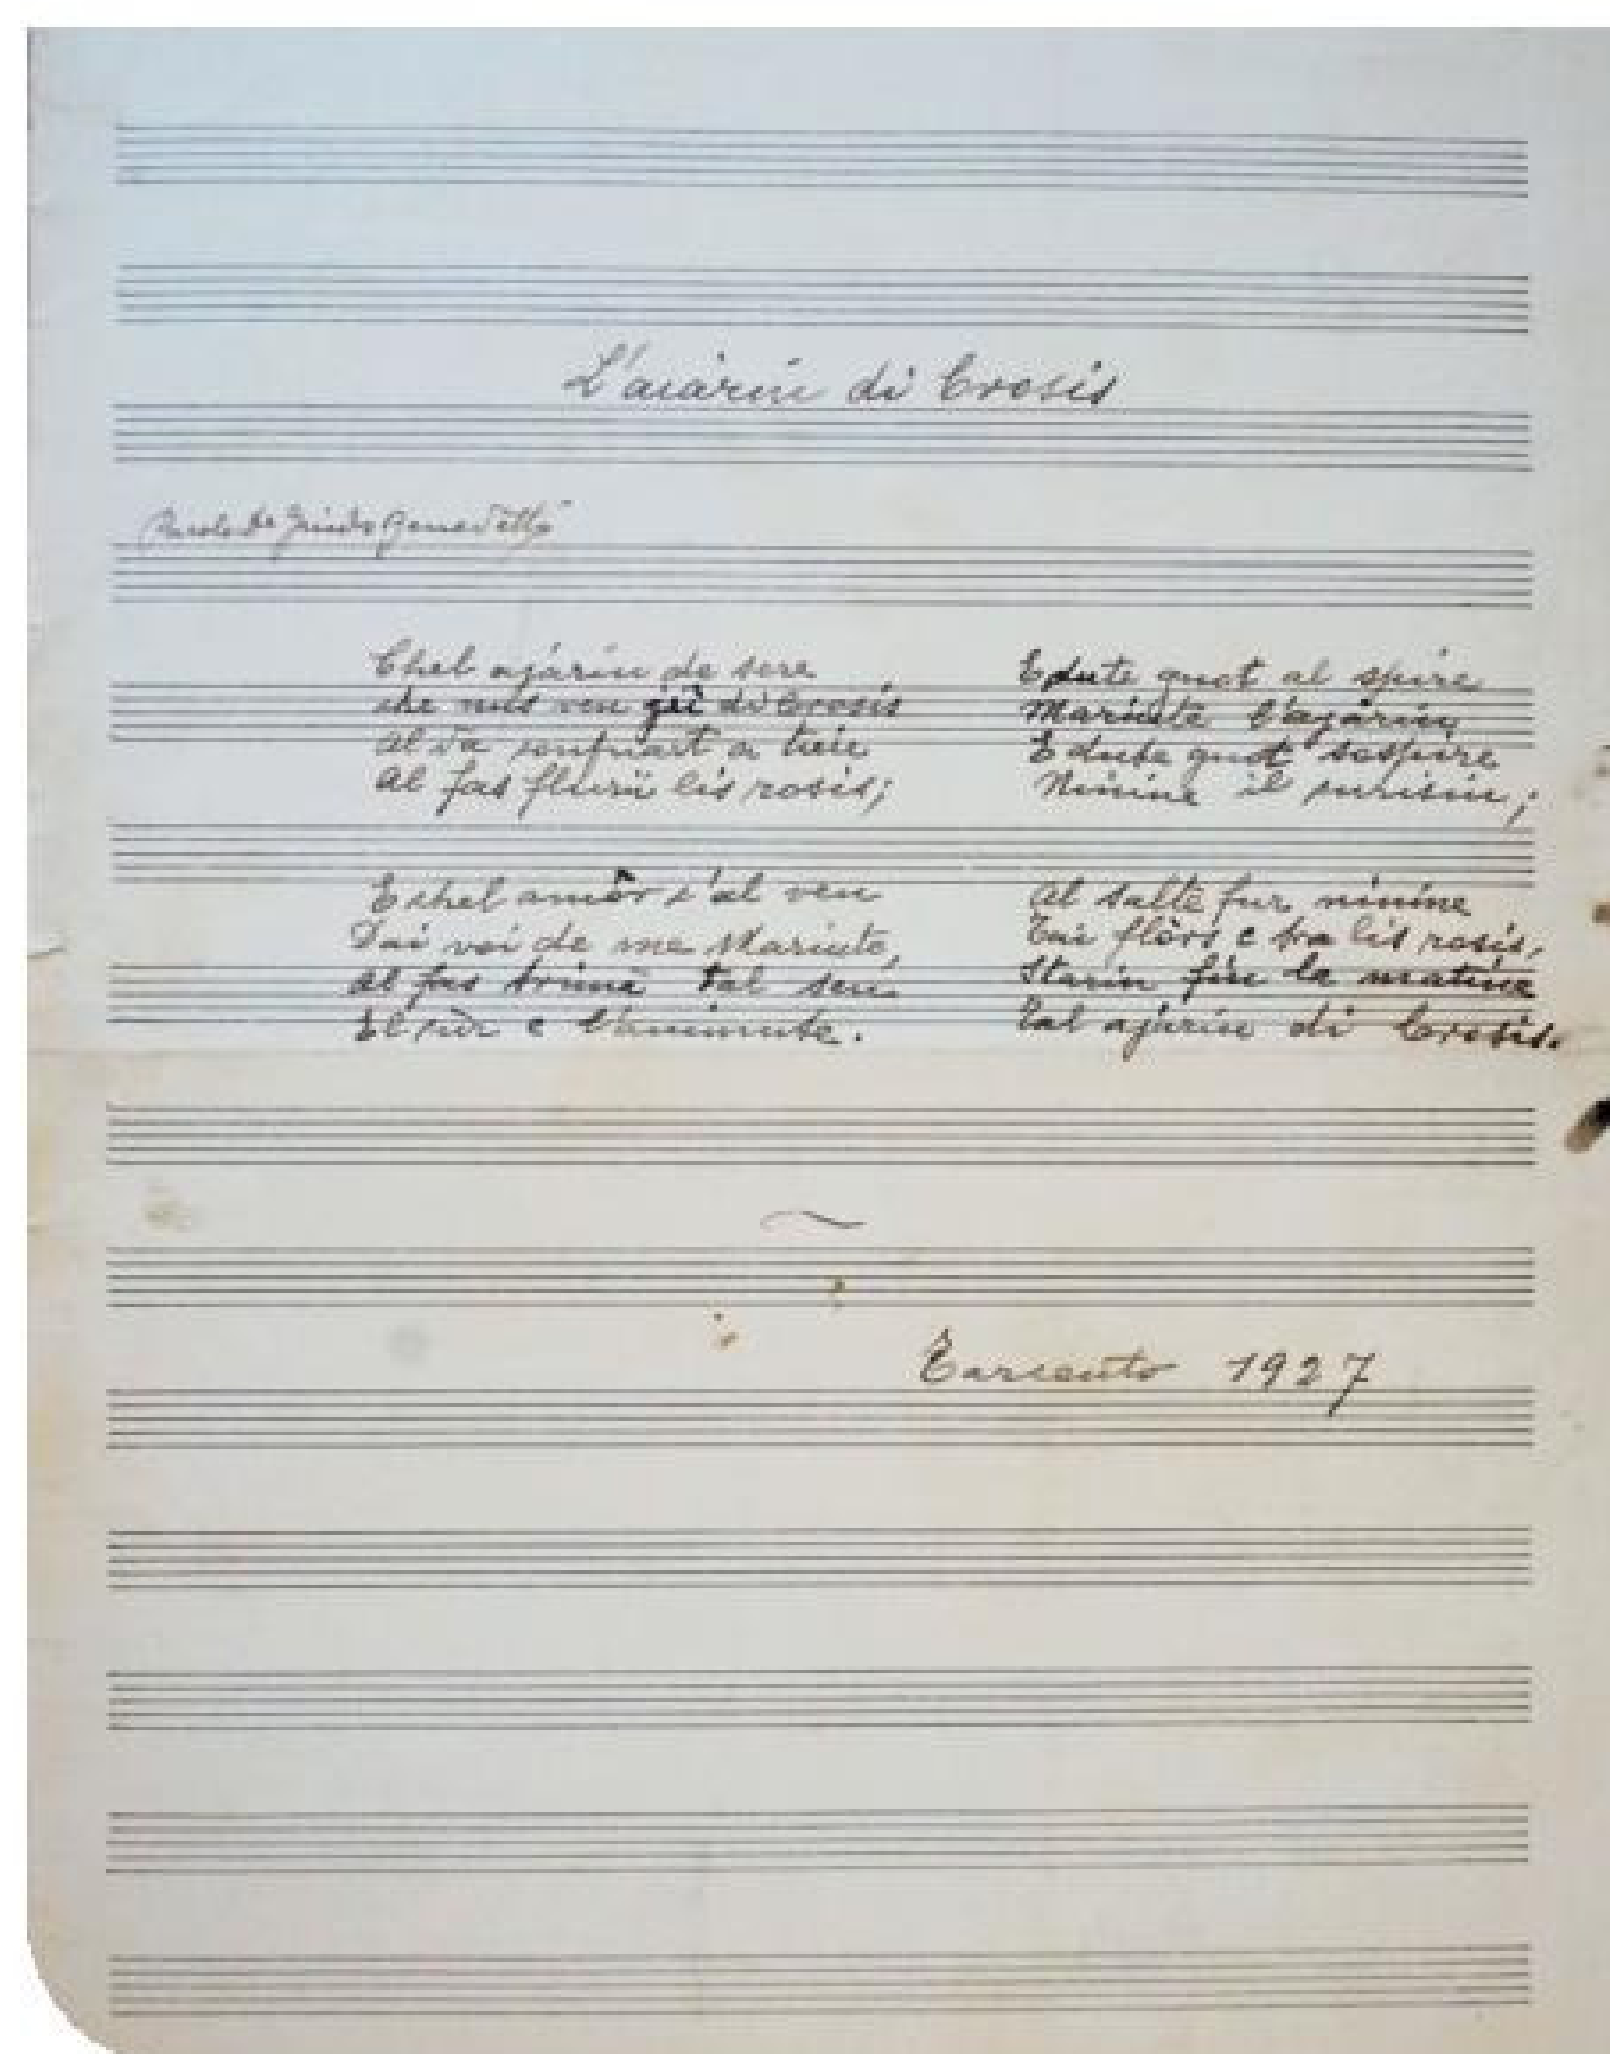 L'aiarin di Crosis
Parole di Guido Benedetti
Chel ajarin de sere
che nus ven jù di Crosis
al da confuart a
al fas flurî lis rosis;
E chel amôr c'al ven
Dai voi de me Mariute,
al fas trimâ tal sen
El cûr e l'animute.
E dute gnot al spire
Mariute l'ajarin,
E dute gnot sospire
Ninine il curisin;
Al salte fur ninine
Tai flôrs e tra lis rosis,
Starin fin la matine
Tal ajarin di Crosis.
Tarcento 1927